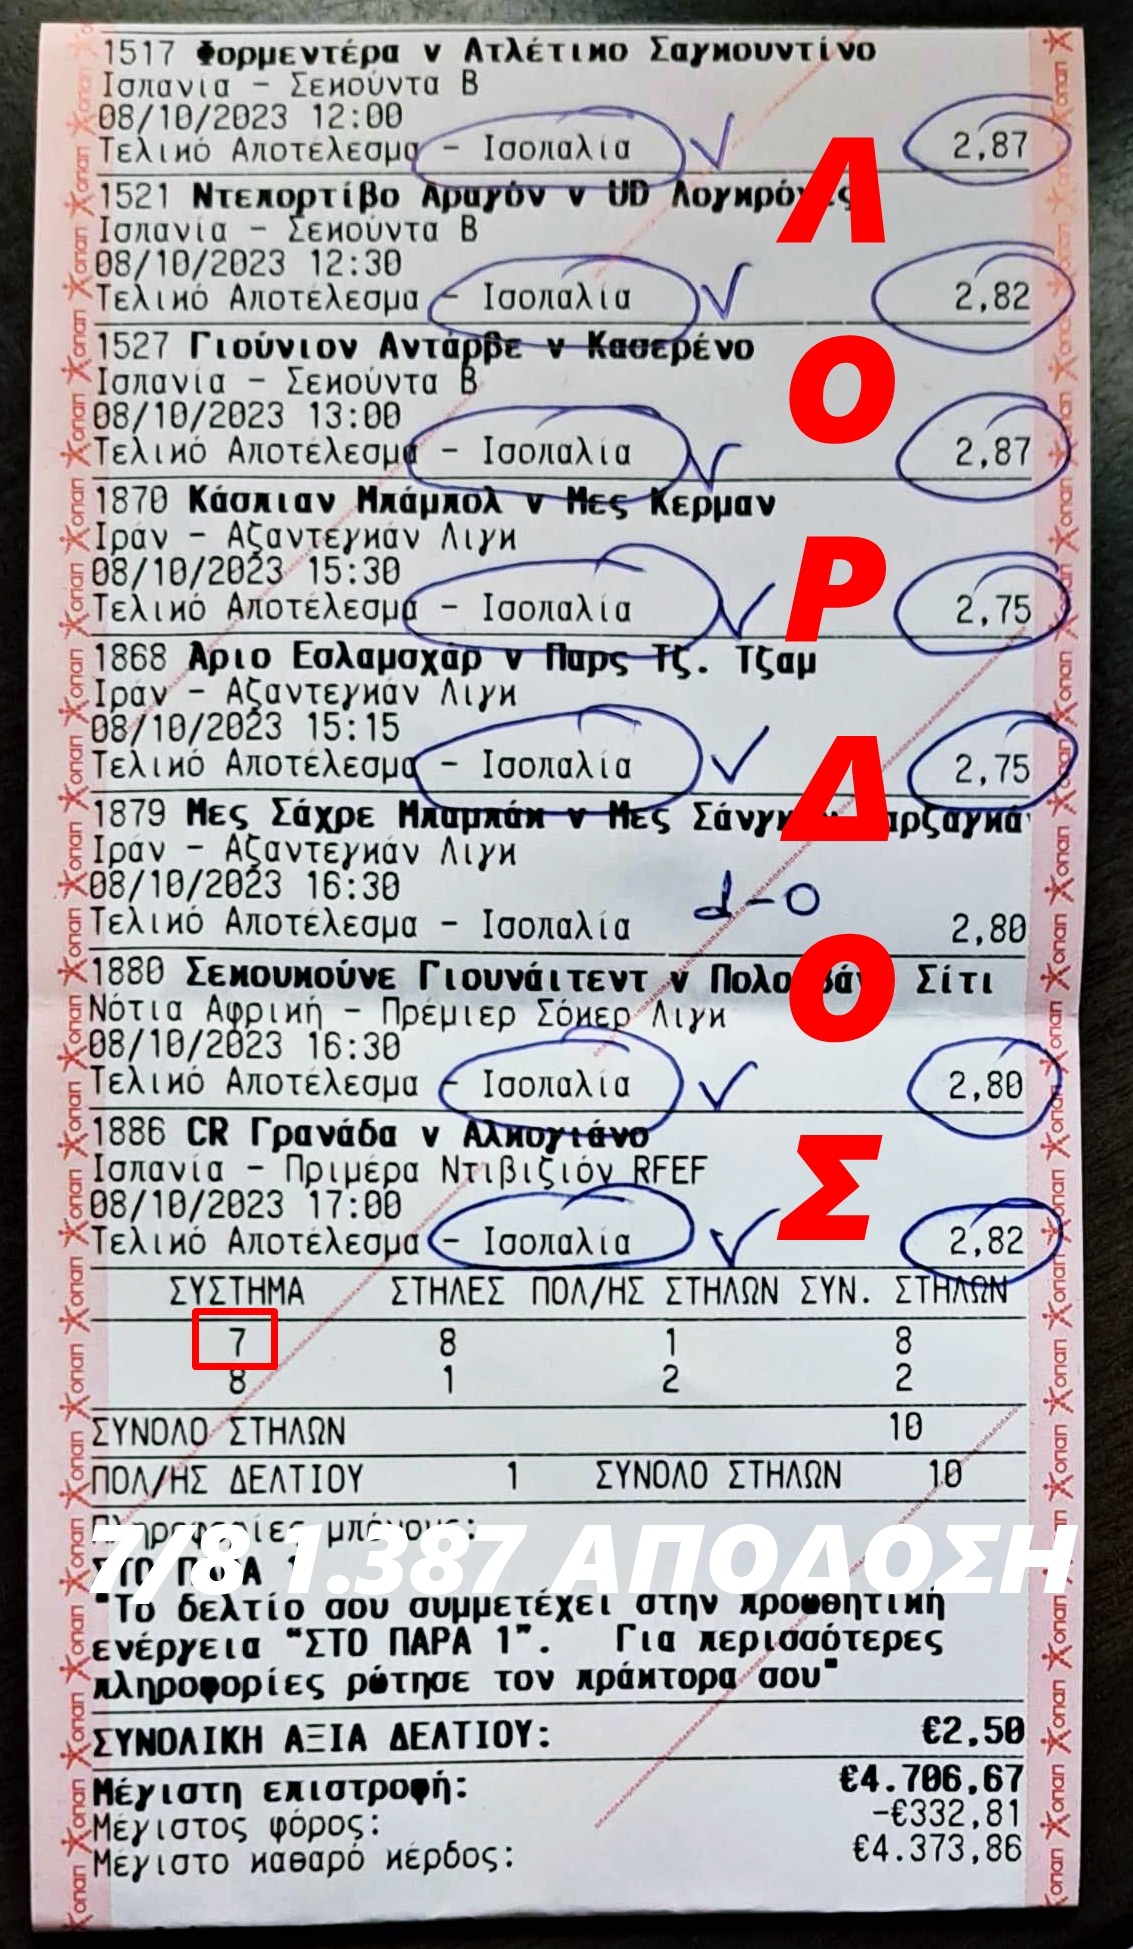 1517 Φορμεντέρα v Ατλέτικο Σαγκουντίνο
Ισπανία - Σεκούντα Β
08/10/2023 12:00
Τελικό Αποτέλεσμα - Ισοπαλία 2,87
1521 Ντεπορτίβο Αραγόν v UD Λογκρόνιες
Ισπανία - Σεκούντα Β
08/10/2023 12:30
Τελικό Αποτέλεσμα - Ισοπαλία 2,82
1527 Γιούνιον Αντάρβε v Κασερένο
Ισπανία - Σεκούντα Β
08/10/2023 13:00
Τελικό Αποτέλεσμα - Ισοπαλία 2,87
1870 Κάσπιαν Μπάμπολ v Μες Κερμαν
Ιράν - Αζαντεγκάν Λιγκ
08/10/2023 15:30
Τελικό Αποτέλεσμα - Ισοπαλία 2,75
1868 Άριο Εσλαμσχάρ v Παρς Τζ. Τζαμ
Ιράν - Αζαντεγκάν Λιγκ
08/10/2023 15:15
Τελικό Αποτέλεσμα - Ισοπαλία 2,75
1879 Μες Σάχρε Μπαμπάκ v Μες
Ιράν - Αζαντεγκάν Λιγκ
08/10/2023 16:30
Τελικό Αποτέλεσμα - Ισοπαλία 2,80
1880 Σεκουκούνε Γιουνάιτεντ v Σίτι
Νότια Αφρική - Πρέμιερ Σόκερ Λιγκ
08/10/2023 16:30
Τελικό Αποτέλεσμα - Ισοπαλία 2,80
1886 CR Γρανάδα v Αλκογιάνο
Ισπανία - Πριμέρα Ντιβιζιόν RFEF
08/10/2023 17:00
Τελικό Αποτέλεσμα - Ισοπαλία 2,82
ΛΟΡΔΟΣ
ΣΥΣΤΗΜΑ ΣΤΗΛΕΣ ΠΟΛ/ΗΣ ΣΤΗΛΩΝ ΣΥΝ. ΣΤΗΛΩΝ
7 8 1 8
8 1 2 2
ΣΥΝΟΛΟ ΣΤΗΛΩΝ 10
ΠΟΛ/ΗΣ ΔΕΛΤΙΟΥ 1 ΣΥΝΟΛΟ ΣΤΗΛΩΝ 10
Πληροφορίες μπόνους:
7/8 1.387 ΑΠΟΔΟΣΗ
ΣΤΟ ΠΑΡΑ 1
"Το δελτίο σου συμμετέχει στην προωθητική
ενέργεια "ΣΤΟ ΠΑΡΑ 1". Για περισσότερες
πληροφορίες ρώτησε τον πράκτορα σου"
ΣΥΝΟΛΙΚΗ ΑΞΙΑ ΔΕΛΤΙΟΥ: €2.50
Μέγιστη επιστροφή: €4.706,67
Μέγιστος φόρος: -€332,81
Μέγιστο καθαρό κέρδος: €4.373,86